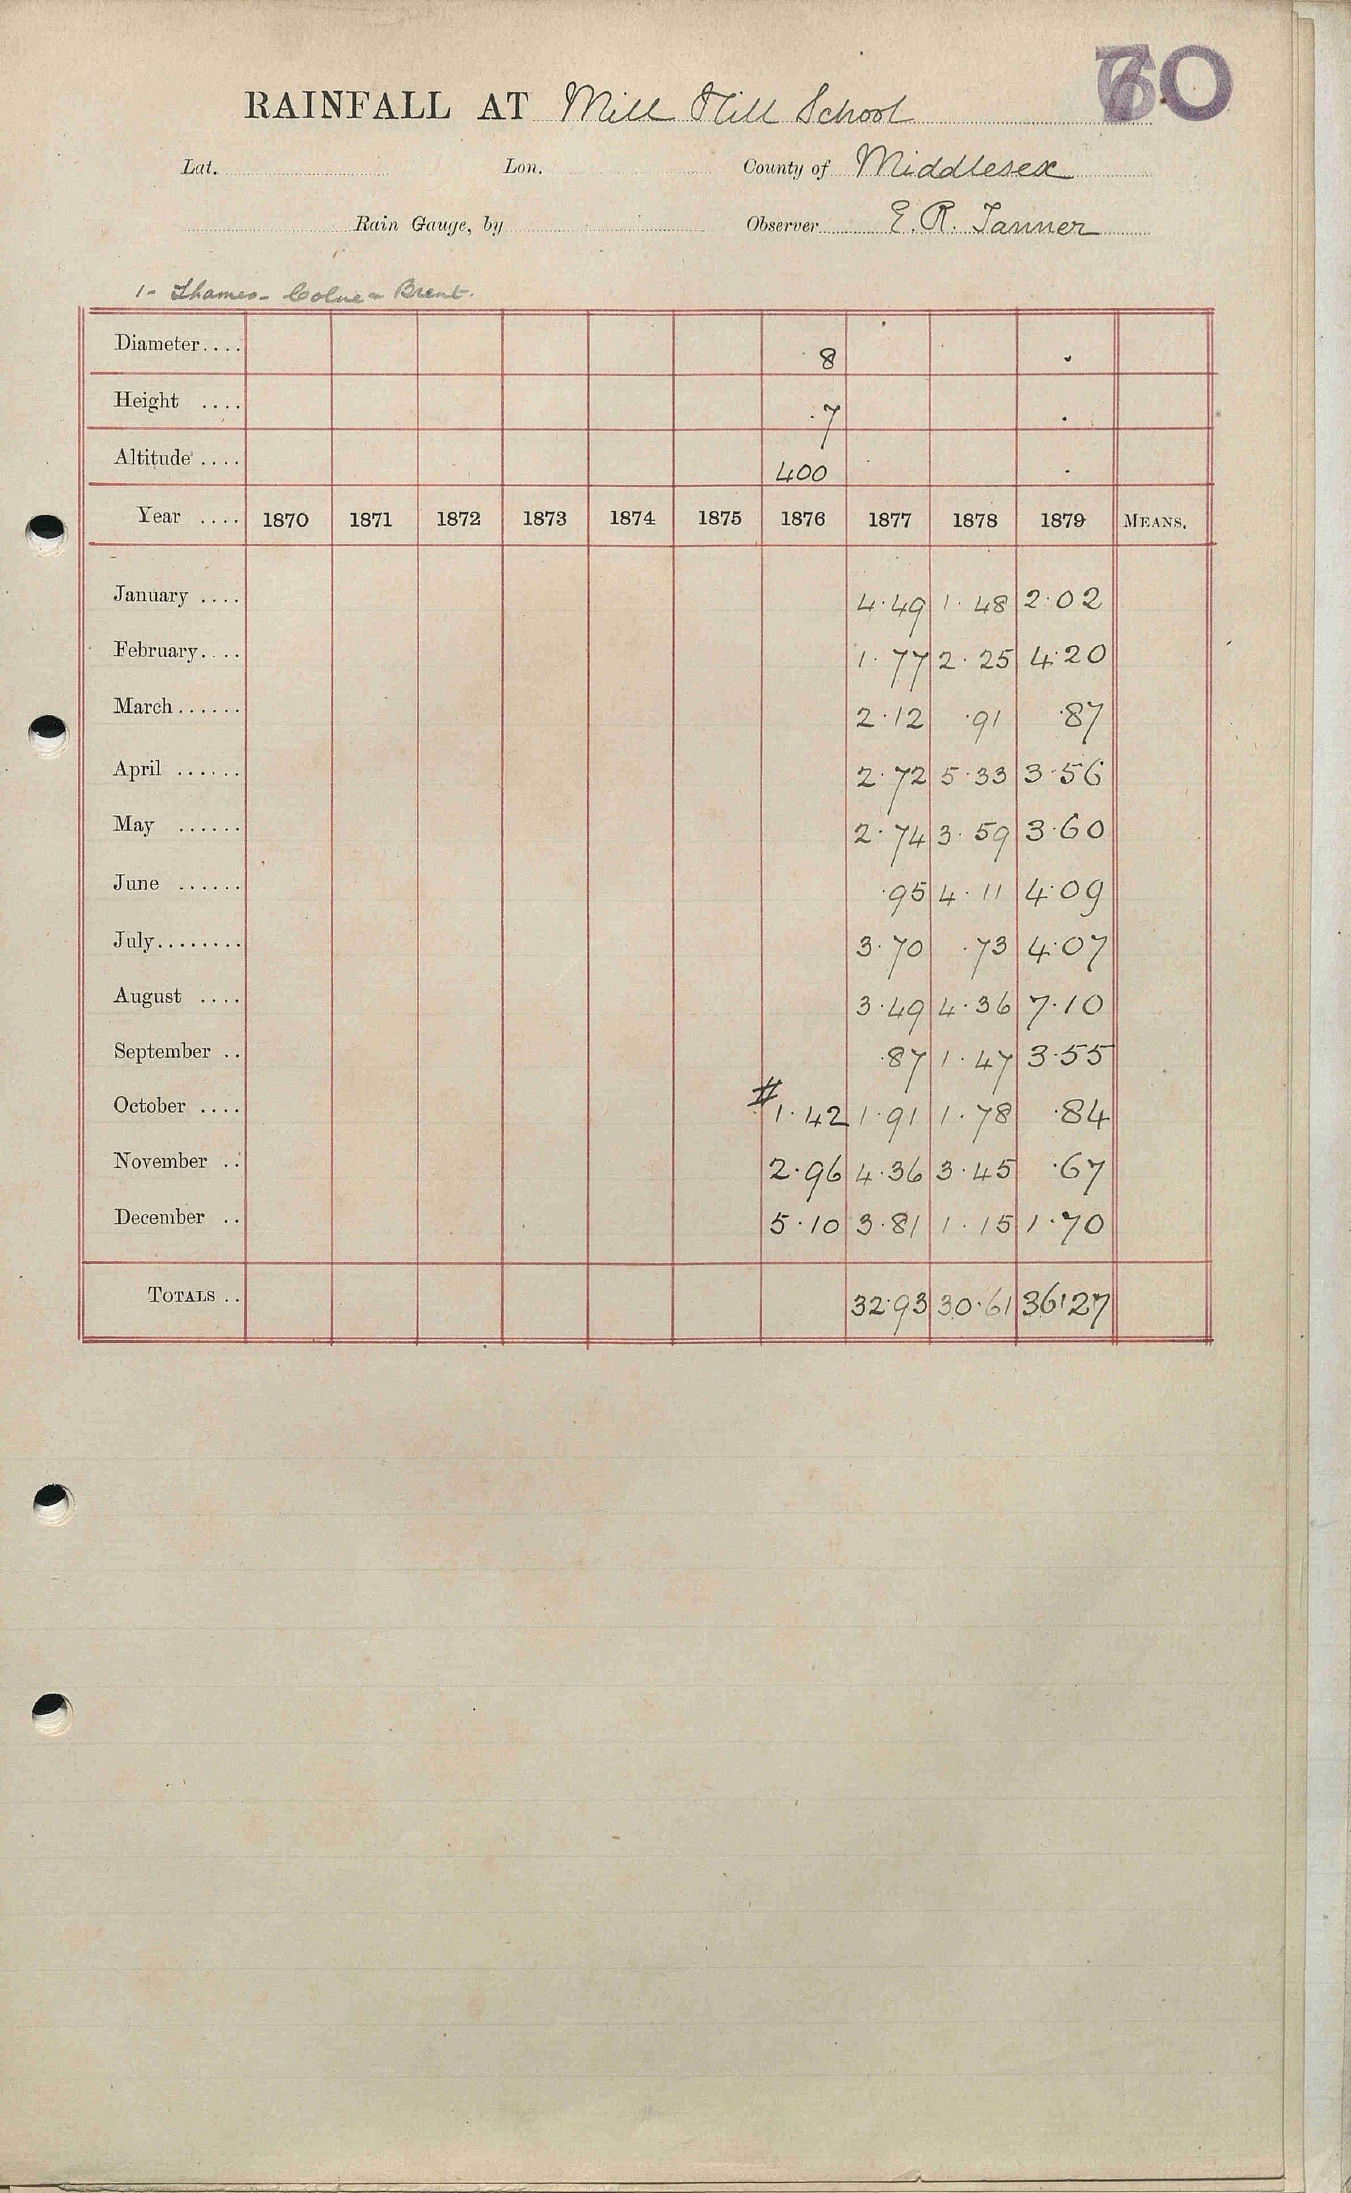 70
RAINFALL AT Mill Hill School
Lat. Lon. County of Middlesex
Rain Gauge, by Observer E. R. Tanner
1- Thames - Colne & Brent.
Diameter.... 8 .
Height .... .7 .
Altitude .... 400 .
Year .... 1870 1871 1872 1873 1874 1875 1876 1877 1878 1879 MEANS.
January .... 4.49 1.48 2.02
February.... 1.77 2.25 4.20
March...... 2.12 .91 .87
April ...... 2.72 5.33 3.56
May ...... 2.74 3.59 3.60
June ...... .95 4.11 4.09
July........ 3.70 .73 4.07
August .... 3.49 4.36 7.10
September .. .87 1.47 3.55
October .... # 1.42 1.91 1.78 .84
November .. 2.96 4.36 3.45 .67
December .. 5.10 3.81 1.15 1.70
TOTALS .. 32.93 30.61 36.27